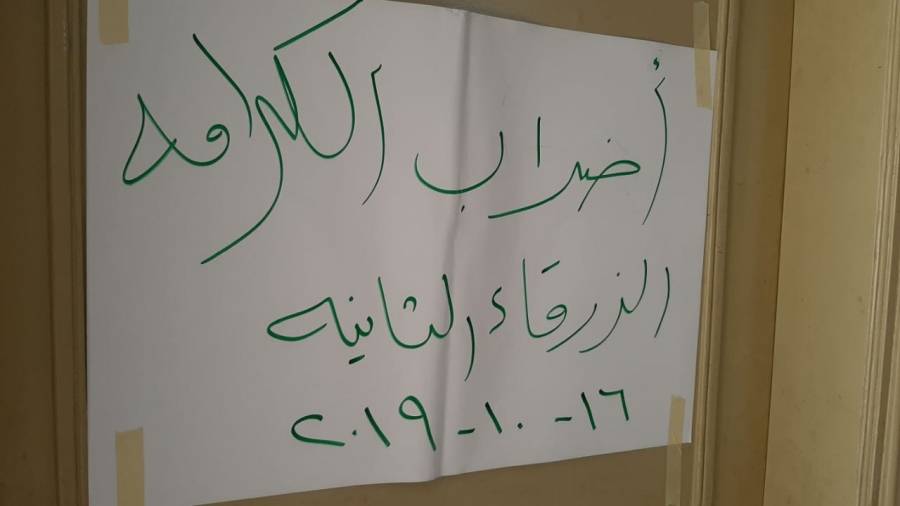 أضراب الكرامه
الزرقاء الثانيه
١٦-١٠-٢٠١٩